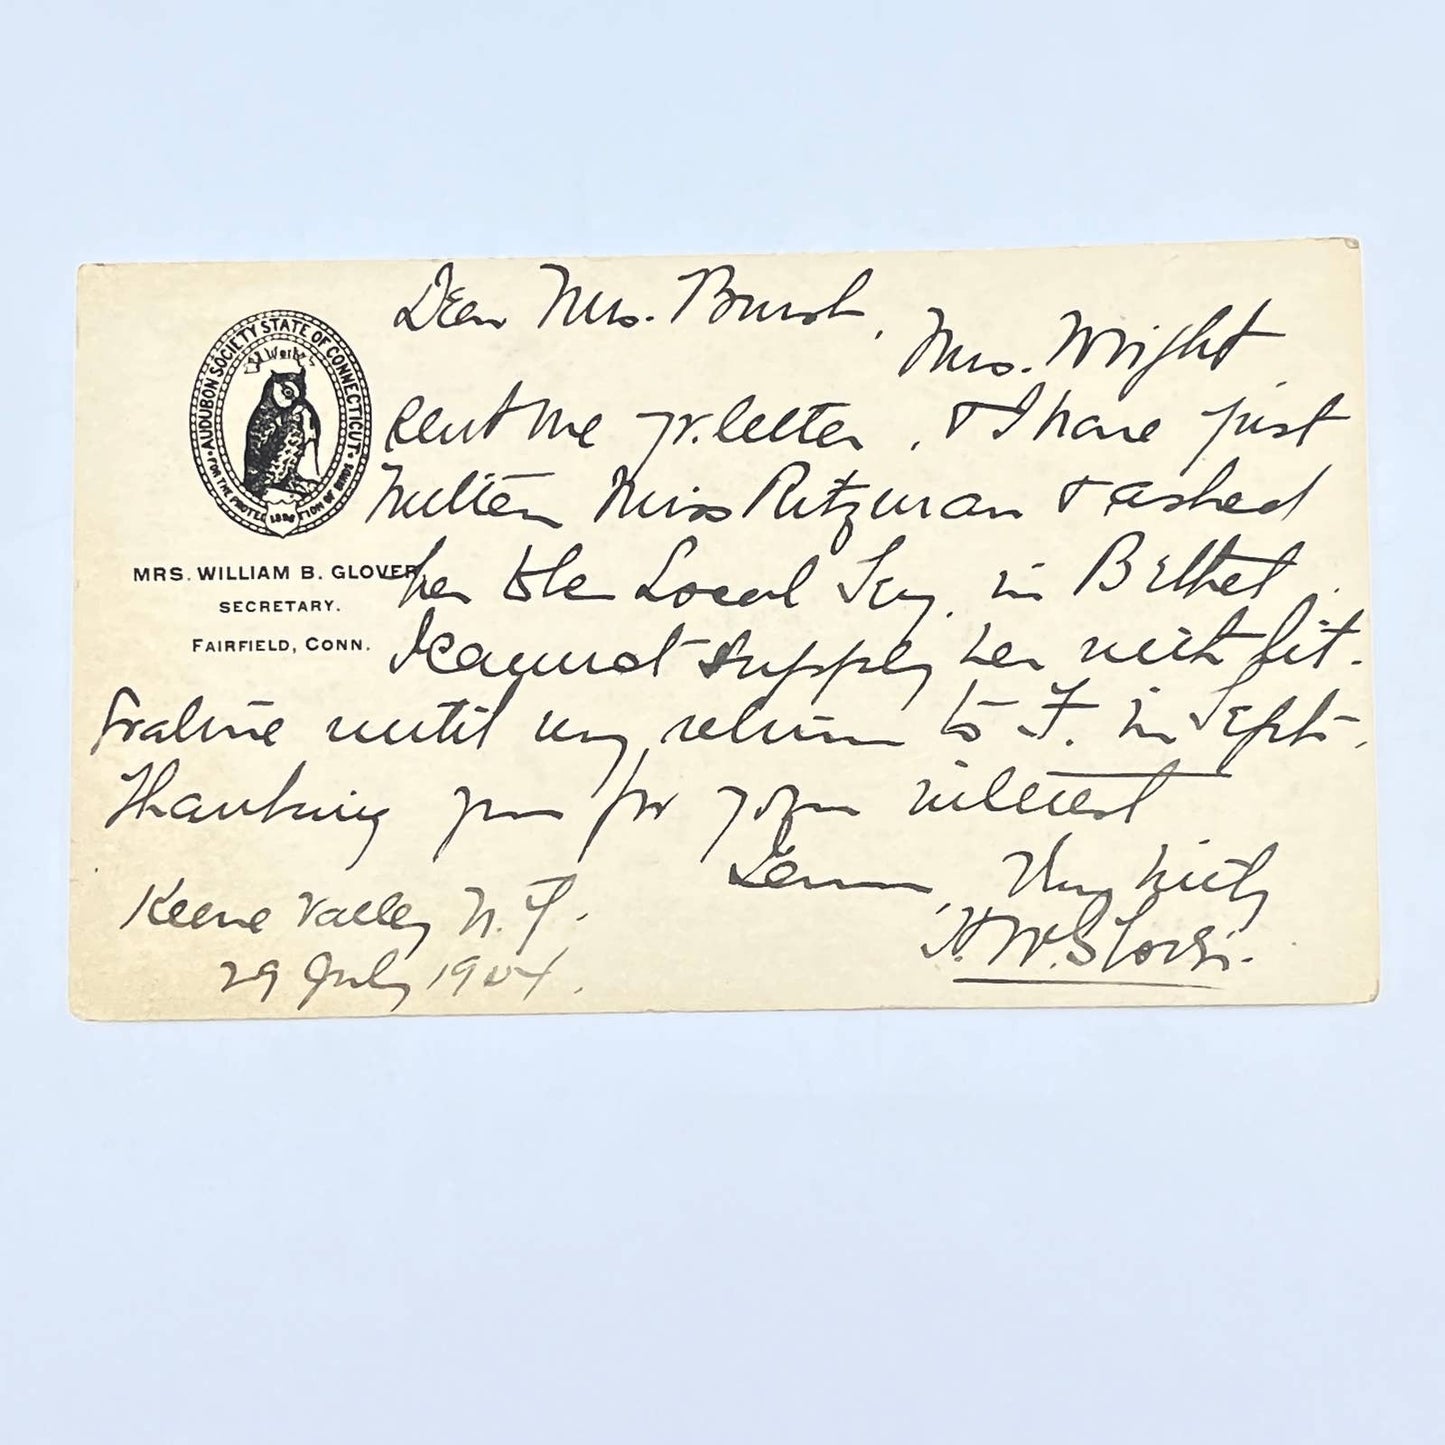 Dear Mrs. Burst,
Mrs. Wright
sent me yr. letter, & I have just
written Miss Ritzman & asked
her to be Local Secy. in Bethel.
I cannot supply her with lit-
erature until my return to F. in Sept-.
Thanking you for your interest
I am, Very truly
H. W. Glover.
Keene Valley N.Y.
29 July 1904.
AUDUBON SOCIETY STATE OF CONNECTICUT
FOR THE PROTECTION OF BIRDS
1886
MRS. WILLIAM B. GLOVER
SECRETARY.
FAIRFIELD, CONN.